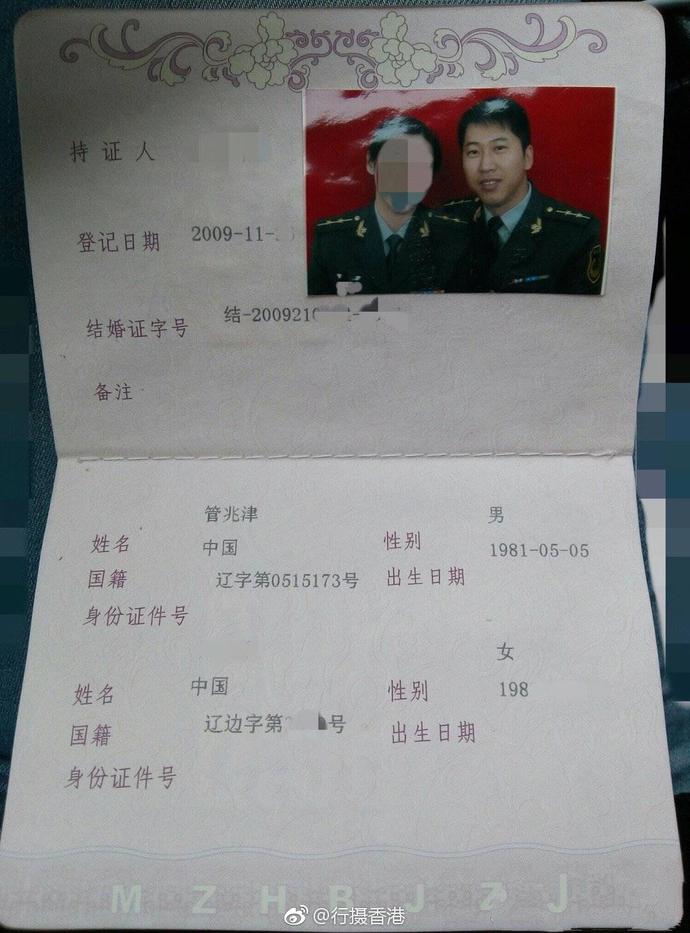 持证人
登记日期 2009-11-
结婚证字号 结-200921
备注
管兆津 男
姓名 中国 性别 1981-05-05
国籍 辽字第0515173号 出生日期
身份证件号
女
姓名 中国 性别 198
国籍 辽边字第 号 出生日期
身份证件号
MZHBJZJ
@行摄香港